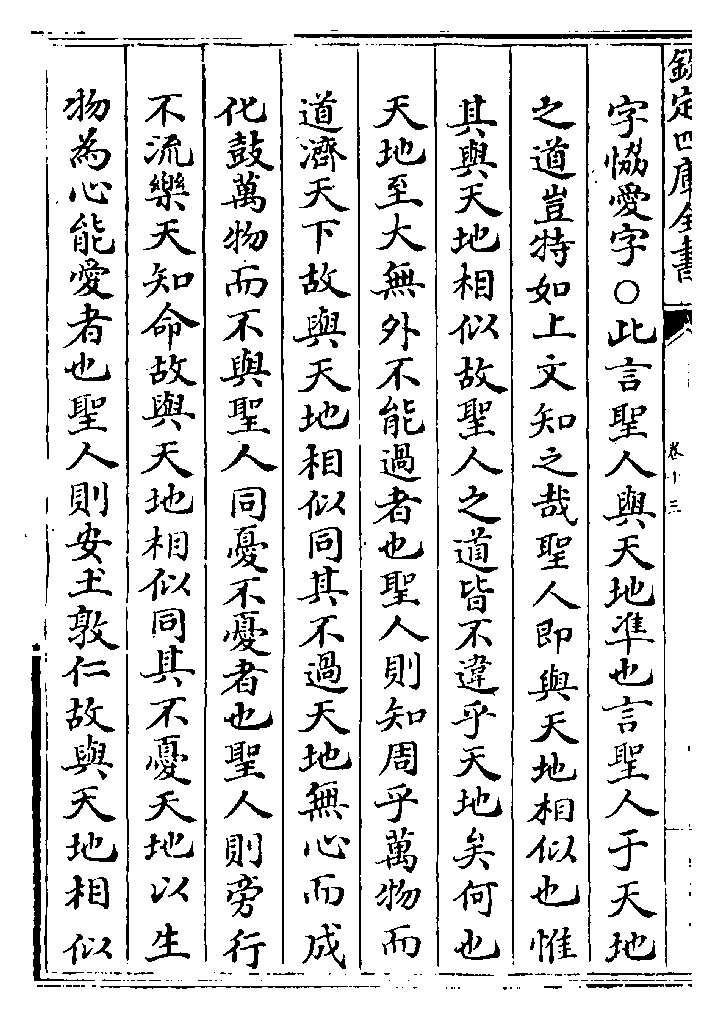 欽定四庫全書
卷十三
字惱愛字○此言聖人與天地準也言聖人于天地
之道豈特如上文知之哉聖人即與天地相似也惟
其與天地相似故聖人之道皆不違乎天地矣何也
天地至大無外不能過者也聖人則知周乎萬物而
道濟天下故與天地相似同其不過天地無心而成
化鼓萬物而不與聖人同憂不憂者也聖人則旁行
不流樂天知命故與天地相似同其不憂天地以生
物為心能愛者也聖人則安土敦仁故與天地相似